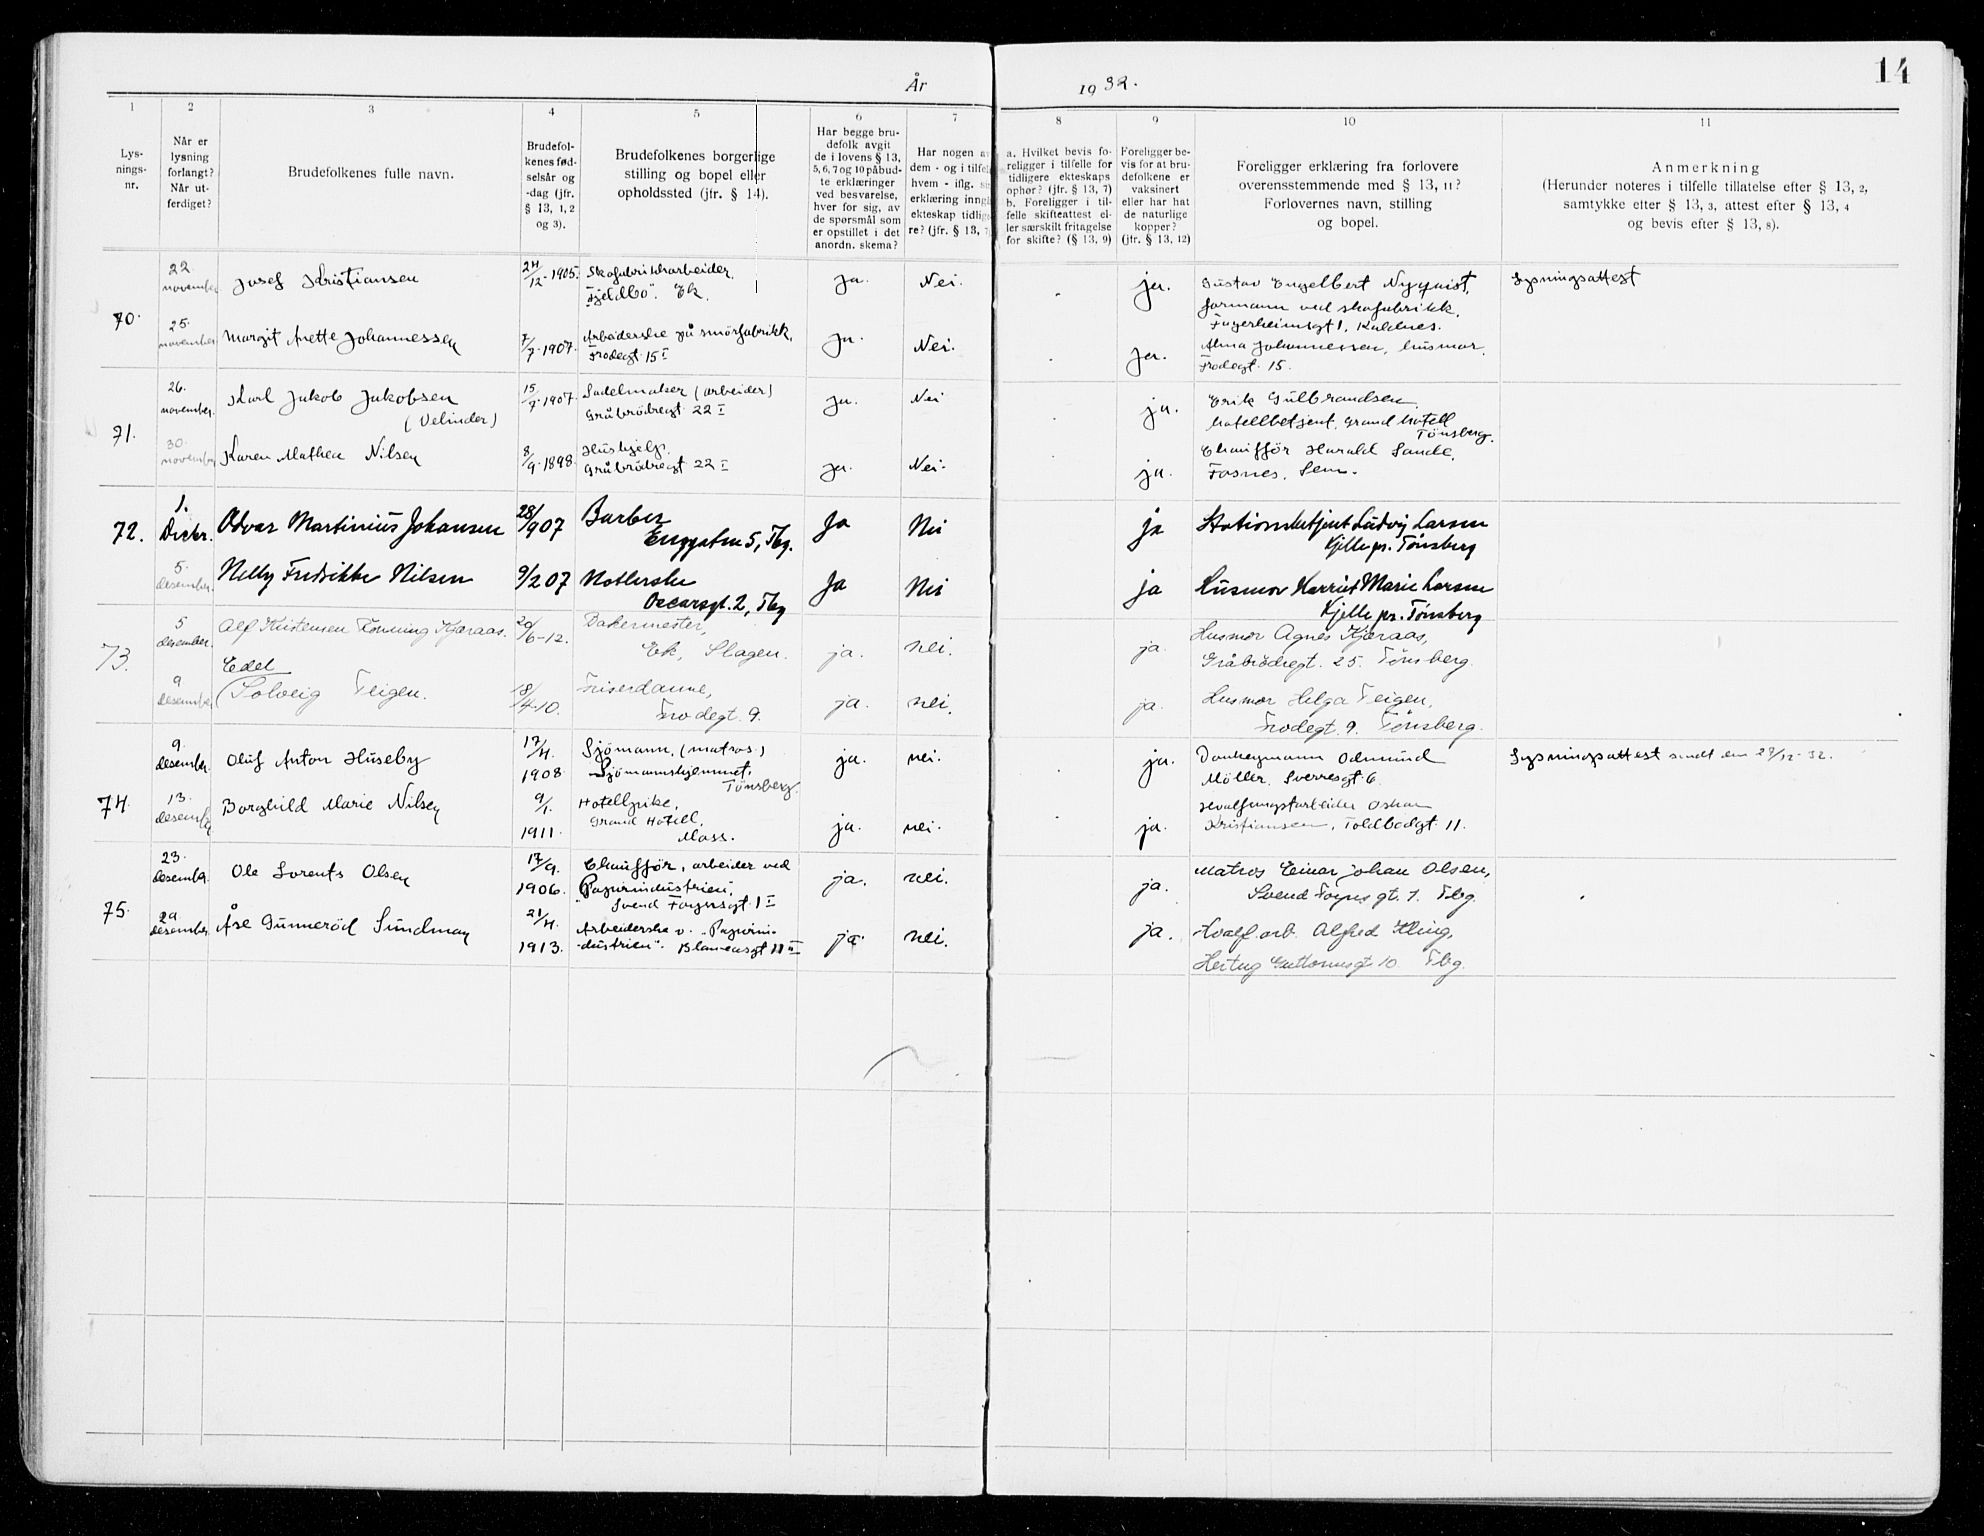 14
År 1932.
1 2 3 4 5 6 7 8 9 10 11
Lys-
nings-
nr.
Når er
lysning
forlangt?
Når ut-
ferdiget?
Brudefolkenes fulle navn.
Brudefol-
kenes fød-
selsår og
-dag (jfr.
§ 13, 1, 2
og 3).
Brudefolkenes borgerlige
stilling og bopel eller
opholdssted (jfr. § 14).
Har begge bru-
defolk avgit
de i lovens § 13,
5, 6, 7 og 10 påbud-
te erklæringer
ved besvarelse,
hver for sig, av
de spørsmål som
er opstillet i det
anordn. skema?
Har nogen a
dem - og i tilfel
hvem - iflg. si
erklæring inngå
ekteskap tidlige
re? (jfr. § 13, 7
a. Hvilket bevis fo-
religger i tilfelle for
tidligere ekteskaps
ophør? (jfr. § 13, 7)
b. Foreligger i til-
felle skifteattest el-
ler særskilt fritagelse
for skifte? (§ 13, 9)
Foreligger be-
vis for at bru-
defolkene er
vaksinert
eller har hat
de naturlige
kopper?
(jfr. § 13, 12)
Foreligger erklæring fra forlovere
overensstemmende med § 13, 11?
Forlovernes navn, stilling
og bopel.
Anmerkning
(Herunder noteres i tilfelle tillatelse efter § 13, 2,
samtykke efter § 13, 3, attest efter § 13, 4
og bevis efter § 13, 8).
70.
22.
november
Josef Kristiansen
24/12-1905.
Skofabrikkarbeider.
"Fjeldbo". Ek.
ja.
Nei.
ja.
Gustav Engelbert Nyqvist,
formann ved skofabrikk,
Fagerheimsgt 1, Kaldnes.
Lysningsattest
25.
november
Margit Anette Johannessen
7/7-1907.
Arbeiderske på smörfabrikk,
Frodegt. 15 I
ja.
Nei.
ja.
Alma Johannessen, husmor.
Frodegt. 15.
71.
26.
november.
Karl Jakob Jakobsen
(Velinder)
15/7-1907.
Sadelmaker (arbeider)
Gråbrödregt. 22 I
ja.
Nei
ja.
Erik Gulbrandsen,
hotellbetjent, Grand hotell
Tönsberg.
30.
november
Karen Mathea Nilsen
8/9-1898.
Hushjelp.
Gråbrödregt 22 I
ja.
Nei.
ja.
Chauffför Harald Sande,
Fosnes, Sem.
72.
1.
Decbr.
Odvar Martinius Johansen
28/907
Barber
Enggaten 5, Tbg.
Ja
Nei
ja
Stationsbetjent Ludvig Larsen
Kjelle pr. Tönsberg
5.
desember.
Nelly Fredrikke Nilsen
9/2 07
Oscarsgt. 2, Tbg
Ja
Nei
ja
Husmor Harriet Marie Larsen
Kjelle pr. Tönsberg
73.
5
desember.
Alf Kristensen Rönning Kjæraas.
20/6-12.
Bakermester,
Ek, Slagen.
ja.
nei.
ja.
Husmor Agnes Kjæraas,
Gråbrödregt. 25. Tönsberg.
9
desember
Edel
(Solveig Teigen.
18/4-10.
Friserdame,
Frodegt. 9.
ja.
nei.
ja.
Husmor Helga Teigen,
Frodegt. 9. Tönsberg.
74.
9.
desember.
Oluf Anton Huseby
17/4.
1908
Sjömann, (matros)
Sjömannshjemmet.
Tönsberg.
ja.
nei.
ja.
Odmund
Möller. Sverresgt 6.
Lysningsattest sendt den 29/12-32.
13.
desember
Borghild Marie Nilsen
9/1.
1911.
Hotellpike,
Grand Hotell,
Moss.
ja.
nei.
ja.
Hvalfangstarbeider Oskar
Kristiansen, Toldbodgt. 11.
75.
23.
desember.
Ole Lorents Olsen
17/9.
1906.
Chauffför, arbeider ved
"Papirindustrien".
Svend Foynsgt. 1 I
ja.
nei.
ja.
Matros Einar Johan Olsen,
Svend Foyns gt. 1. Tbg.
29
desember
Åse Gunneröd Sundman
21/4.
1913.
Arbeiderske v. "Papirin-
dustrien". Blamensgt 11 II
ja.
nei.
ja.
Hvalf.arb. Alfred Kling,
Hertug Guttormsgt 10 Tbg.